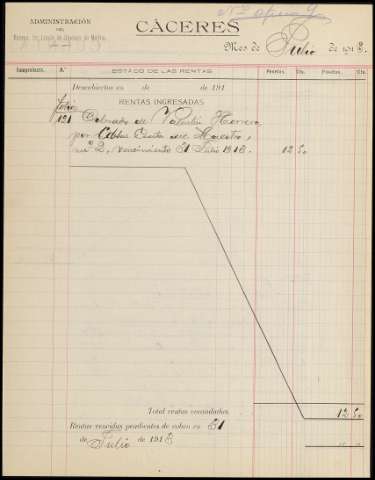 ADMINISTRACIÓN
DEL
CÁCERES
Mes de Julio de 1918.
Comprobante. A.° ESTADO DE LAS RENTAS Pesetas. Cts. Pesetas. Cts.
Descubiertos en de de 191
RENTAS INGRESADAS
Julio
121 Cobrado de Valentín Herrero
por Casa del Maestro,
nº 2, vencimiento 31 Julio 1918. 12 50
Total rentas recaudadas. 12 50
Rentas vencidas pendientes de cobro en 31
de Julio de 1918